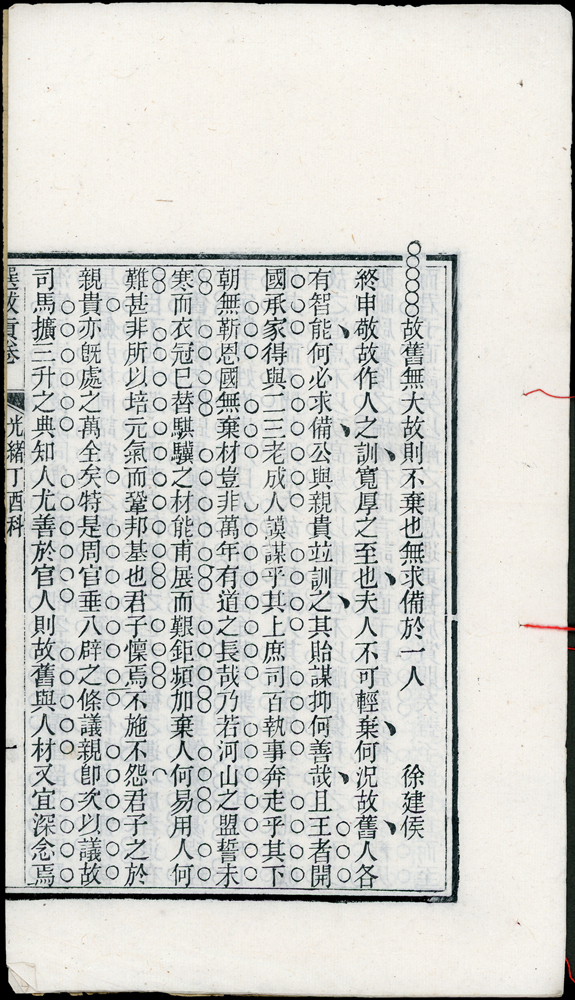 故舊無大故則不棄也無求備於一人 徐建侯
終申敬故作人之訓寬厚之至也夫人不可輕棄何況故舊人各
有智能何必求備公與親貴並訓之其貽謀抑何善哉且王者開
國承家得與二三老成人謨謀乎其上庶司百執事奔走乎其下
朝無靳恩國無棄材豈非萬年有道之長哉乃若河山之盟誓未
寒而衣冠已替騏驥之材能甫展而艱鉅頻加棄人何易用人何
難甚非所以培元氣而鞏邦基也君子懍焉不施不怨君子之於
親貴亦既處之萬全矣特是周官垂八辟之條議親卽次以議故
司馬擴三升之典知人尤善於官人則故舊與人材又宜深念焉
選拔貢卷 光緒丁酉科 一